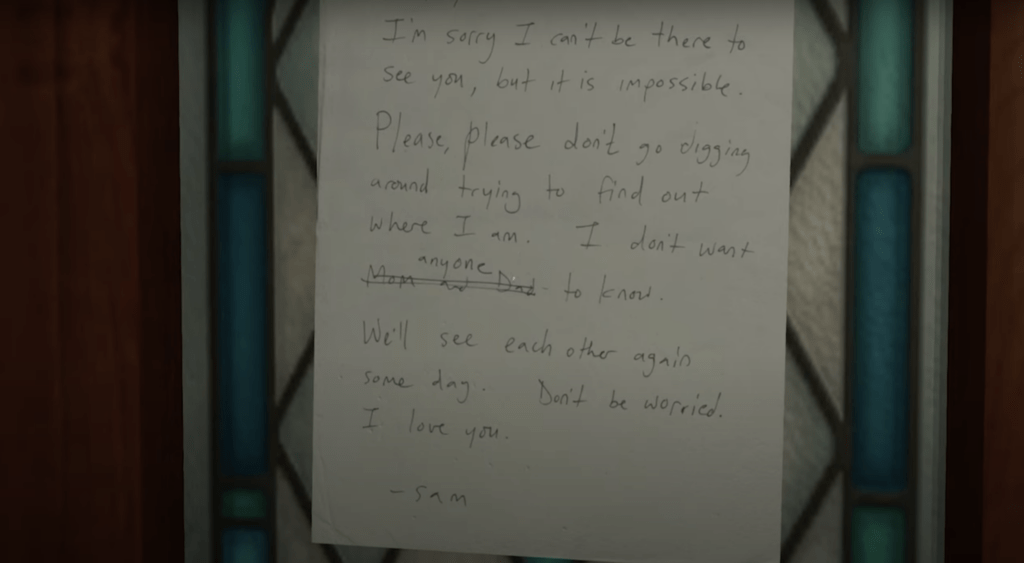 I'm sorry I can't be there to
see you, but it is impossible.
Please, please don't go digging
around trying to find out
where I am. I don't want
anyone
Mom and Dad to know.
We'll see each other again
some day. Don't be worried.
I love you.
- Sam